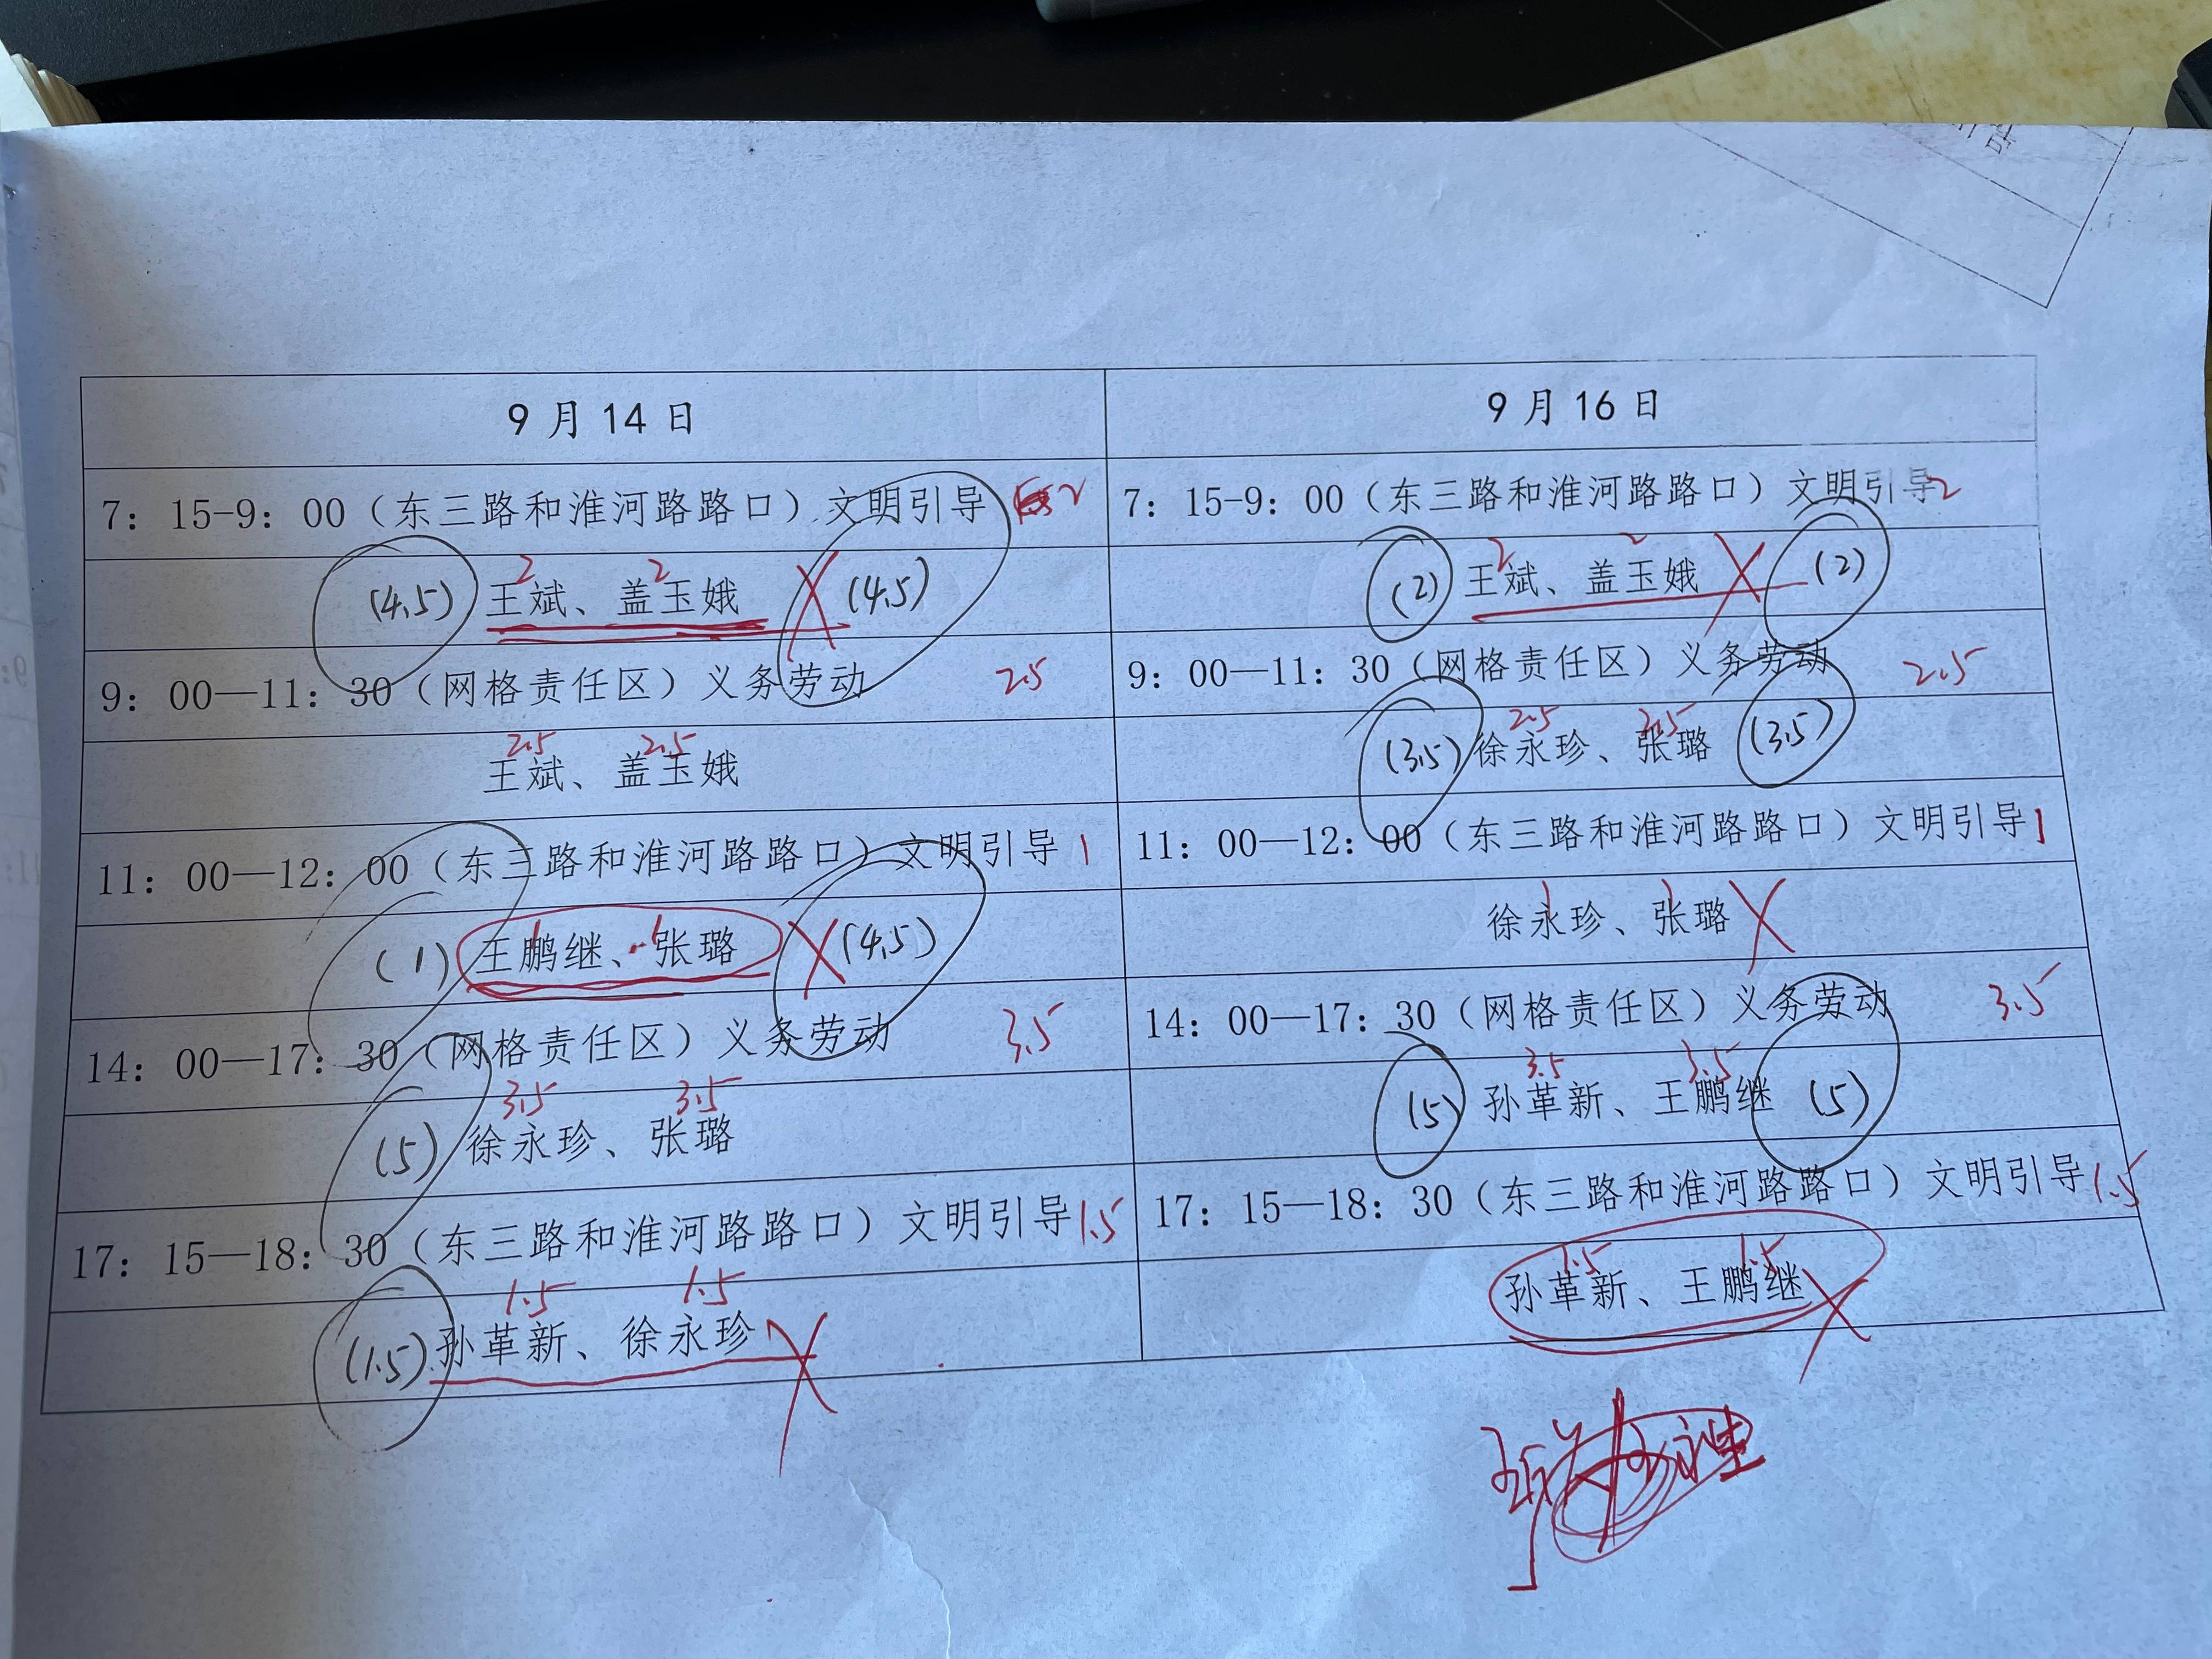 9月14日
7：15-9：00（东三路和淮河路路口）文明引导 2
2 2
(4.5) 王斌、盖玉娥 X (4.5)
9：00—11：30（网格责任区）义务劳动 2.5
2.5 2.5
王斌、盖玉娥
11：00—12：00（东三路和淮河路路口）文明引导 1
1 1
(1) 王鹏继、张璐 X (4.5)
14：00—17：30（网格责任区）义务劳动 3.5
3.5 3.5
(5) 徐永珍、张璐
17：15—18：30（东三路和淮河路路口）文明引导 1.5
1.5 1.5
(1.5) 孙革新、徐永珍 X
9月16日
7：15-9：00（东三路和淮河路路口）文明引导 2
2 2
(2) 王斌、盖玉娥 X (2)
9：00—11：30（网格责任区）义务劳动 2.5
2.5 2.5
(3.5) 徐永珍、张璐 (3.5)
11：00—12：00（东三路和淮河路路口）文明引导 1
1 1
徐永珍、张璐 X
14：00—17：30（网格责任区）义务劳动 3.5
3.5 3.5
(5) 孙革新、王鹏继 (5)
17：15—18：30（东三路和淮河路路口）文明引导 1.5
1.5 1.5
孙革新、王鹏继 X